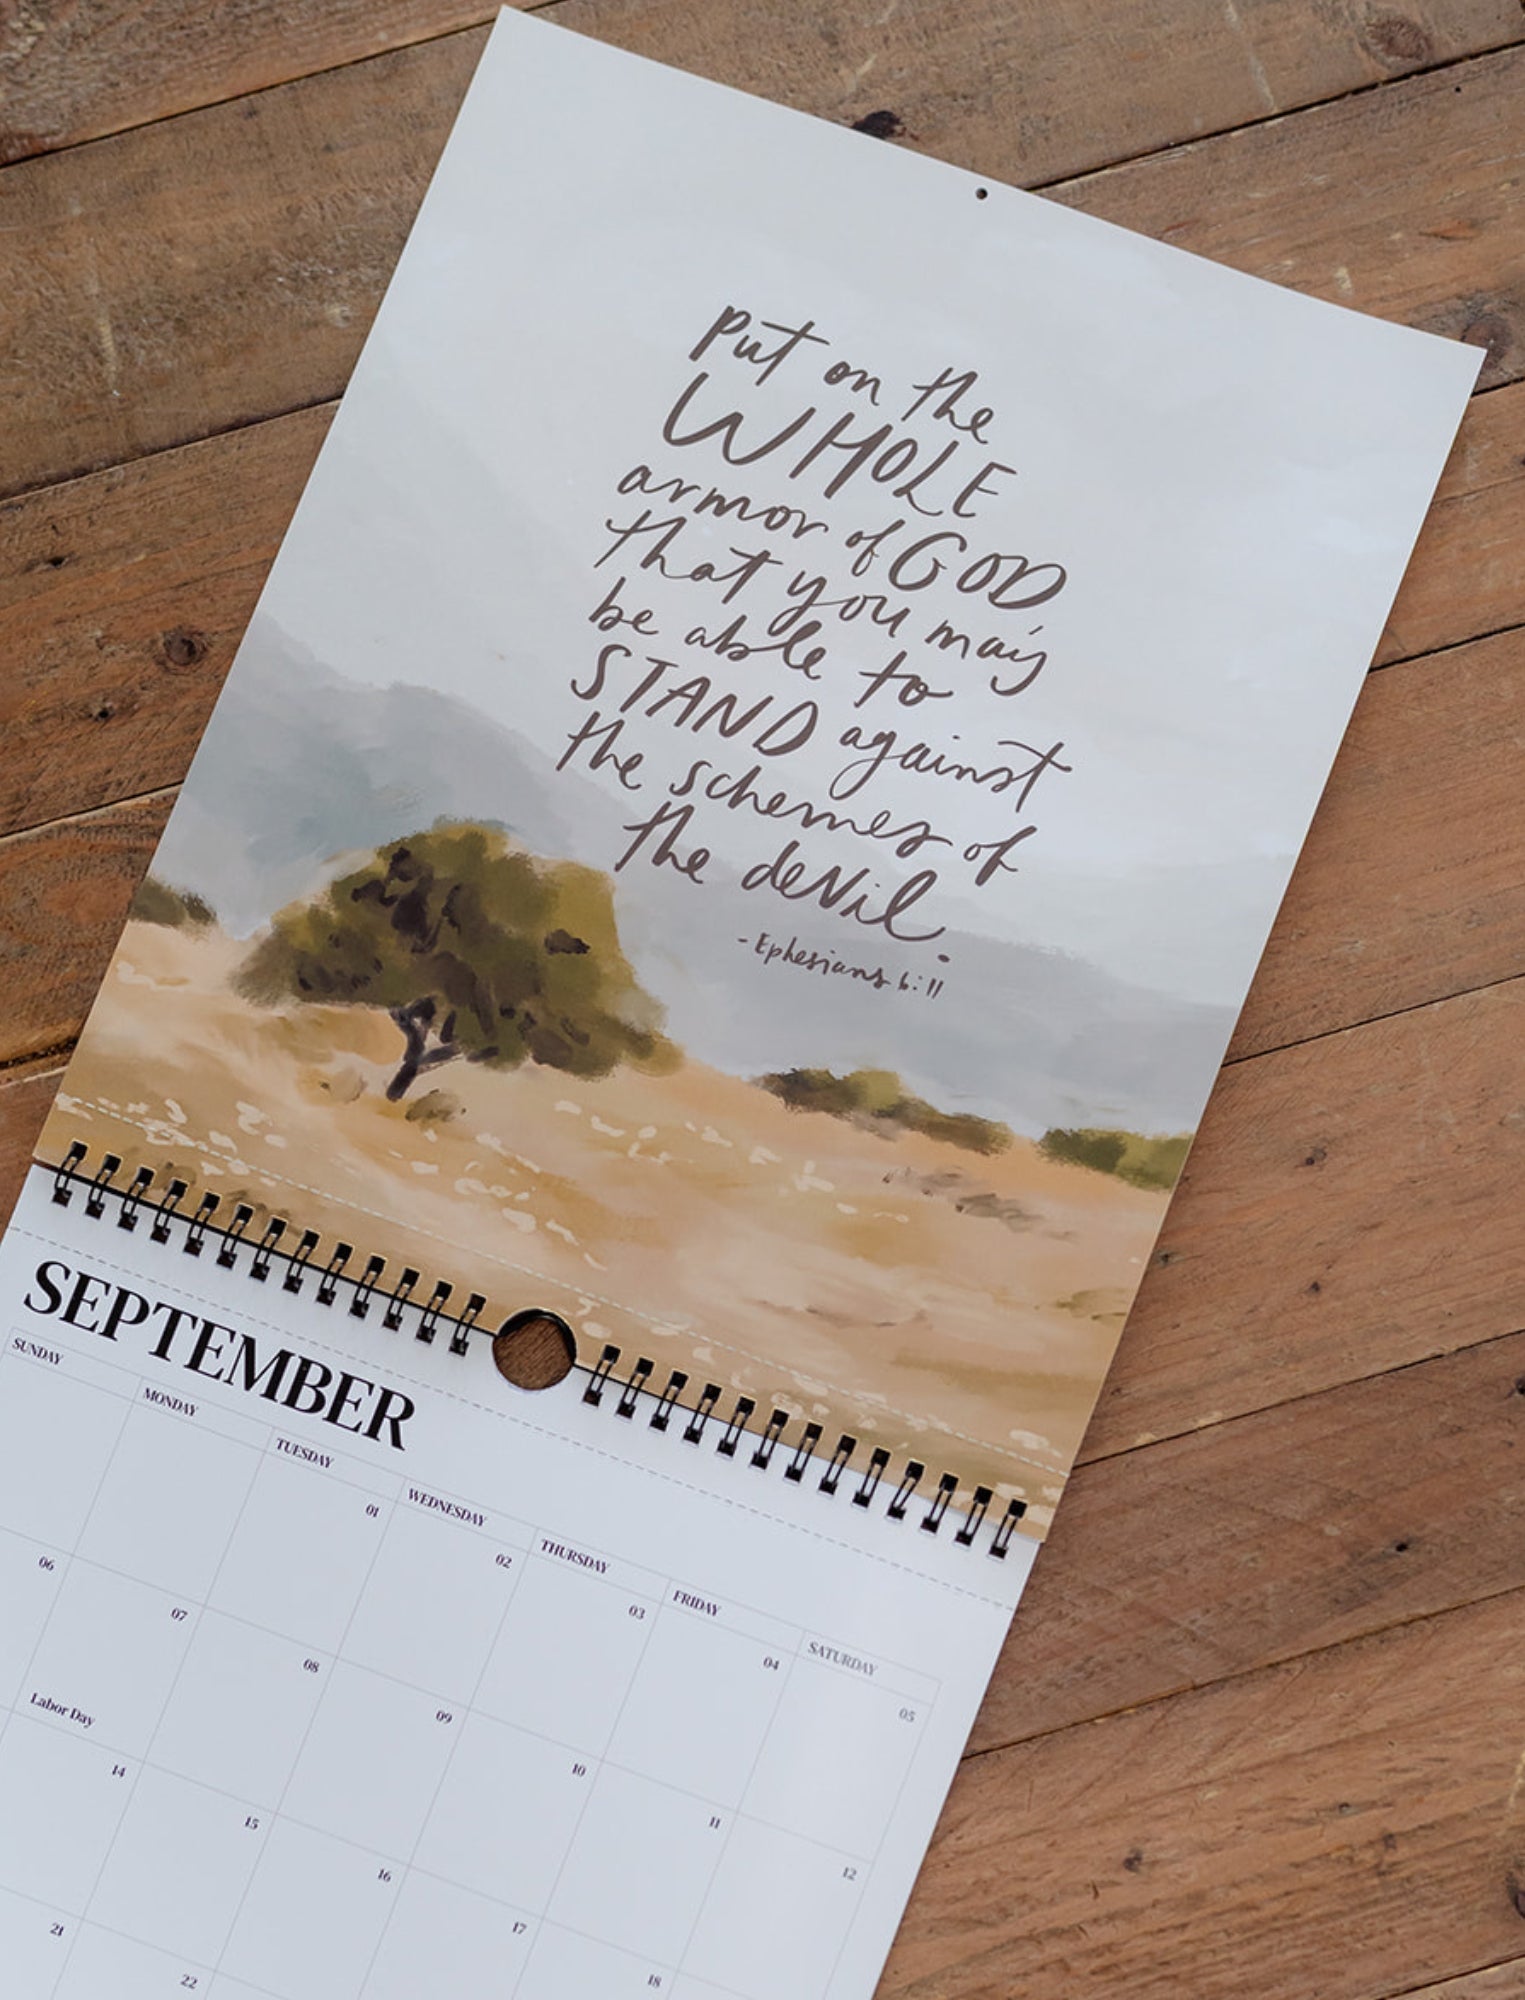 put on the
WHOLE
armor of GOD
that you may
be able to
STAND against
the schemes of
the devil.
- Ephesians 6:11
SEPTEMBER
SUNDAY MONDAY TUESDAY WEDNESDAY THURSDAY FRIDAY SATURDAY
01 02 03 04 05
06 07 08 09 10 11 12
Labor Day
14 15 16 17 18
21 22